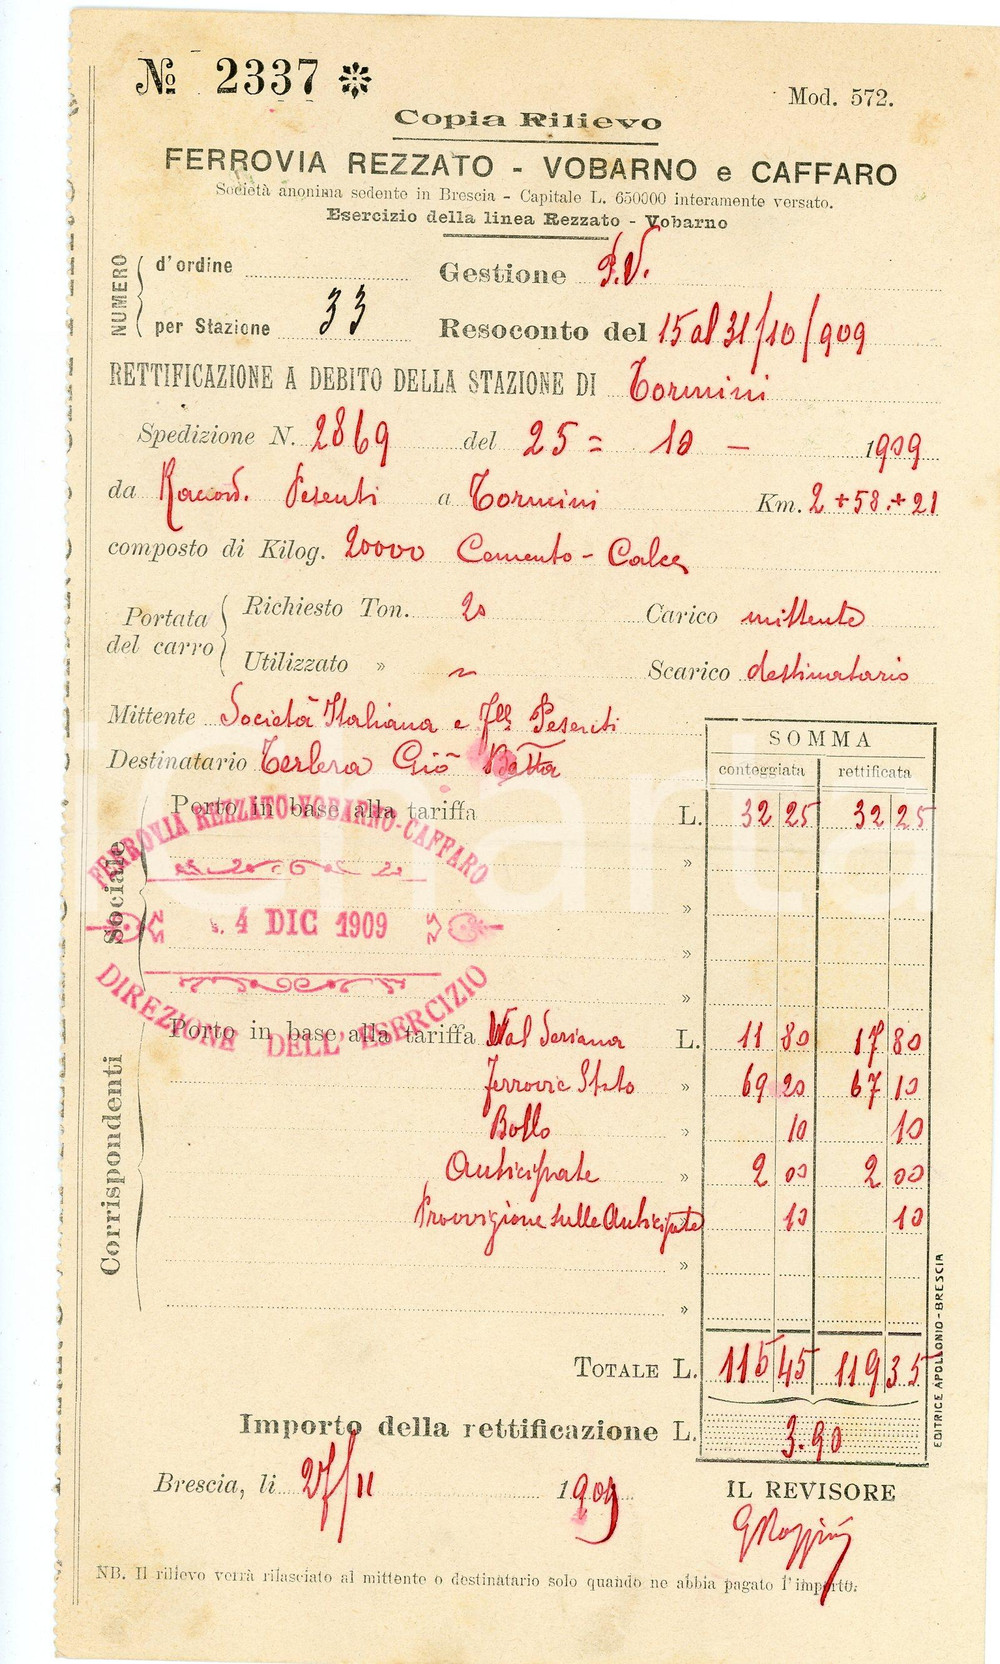 № 2337 ❇
Mod. 572.
Copia Rilievo
FERROVIA REZZATO - VOBARNO e CAFFARO
Società anonima sedente in Brescia - Capitale L. 650000 interamente versato.
Esercizio della linea Rezzato - Vobarno
NUMERO
d'ordine
Gestione P.V.
per Stazione 33
Resoconto del 15 al 31/10/909
RETTIFICAZIONE A DEBITO DELLA STAZIONE DI Tormini
Spedizione N. 2869 del 25 = 10 - 1909
da Raccord. Pesenti a Tormini Km. 2 + 58 + 21
composto di Kilog. 20000 Cemento - Calce
Portata del carro
Richiesto Ton. 20 Carico mittente
Utilizzato » " Scarico destinatario
Mittente Società Italiana e Flli Pesenti
Destinatario Gio Batta
SOMMA
conteggiata rettificata
Sociale
Porto in base alla tariffa L. 32 25 32 25
»
»
»
»
FERROVIA REZZATO-VOBARNO-CAFFARO
4 DIC 1909
DIREZIONE DELL'ESERCIZIO
Corrispondenti
Porto in base alla tariffa Val Seriana L. 11 80 17 80
Ferrovie Stato » 69 20 67 10
Bollo » 10 10
Anticipate » 2 00 2 00
Provvigione sulle Anticipate 10 10
»
»
TOTALE L. 115 45 119 35
Importo della rettificazione L. 3.90
Brescia, li 27/11 1909
IL REVISORE
EDITRICE APOLLONIO - BRESCIA
NB. Il rilievo verrà rilasciato al mittente o destinatario solo quando ne abbia pagato l'importo.
Charta